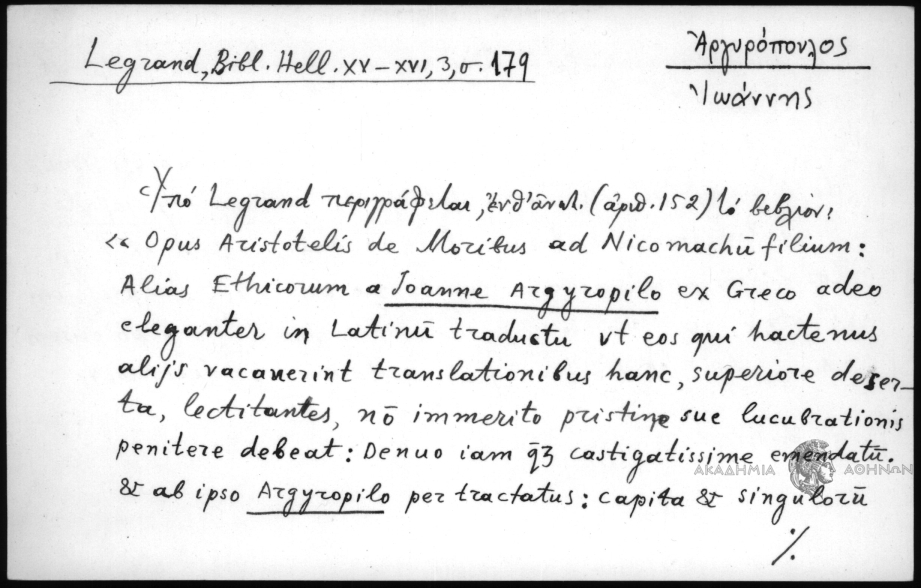 Legrand, Bibl. Hell. XV–XVI, 3, σ. 179
Ἀργυρόπουλος
Ἰωάννης
Ὑπό Legrand περιγράφεται, ἐνθ' ἀνωτ. (ἀριθ. 152) τό βιβλίον:
« Opus Aristotelis de Moribus ad Nicomachū filium:
Alias Ethicorum a Joanne Argyropilo ex Greco adeo
eleganter in Latinū traductu vt eos qui hactenus
alijs vacauerint translationibus hanc, superiore deser–
ta, lectitantes, nō immerito pristine sue lucubrationis
penitere debeat: Denuo iam q̄ꝫ castigatissime emendatū.
& ab ipso Argyropilo per tractatus: capita & singulorū
./.
ΑΚΑΔΗΜΙΑ ΑΘΗΝΩΝ